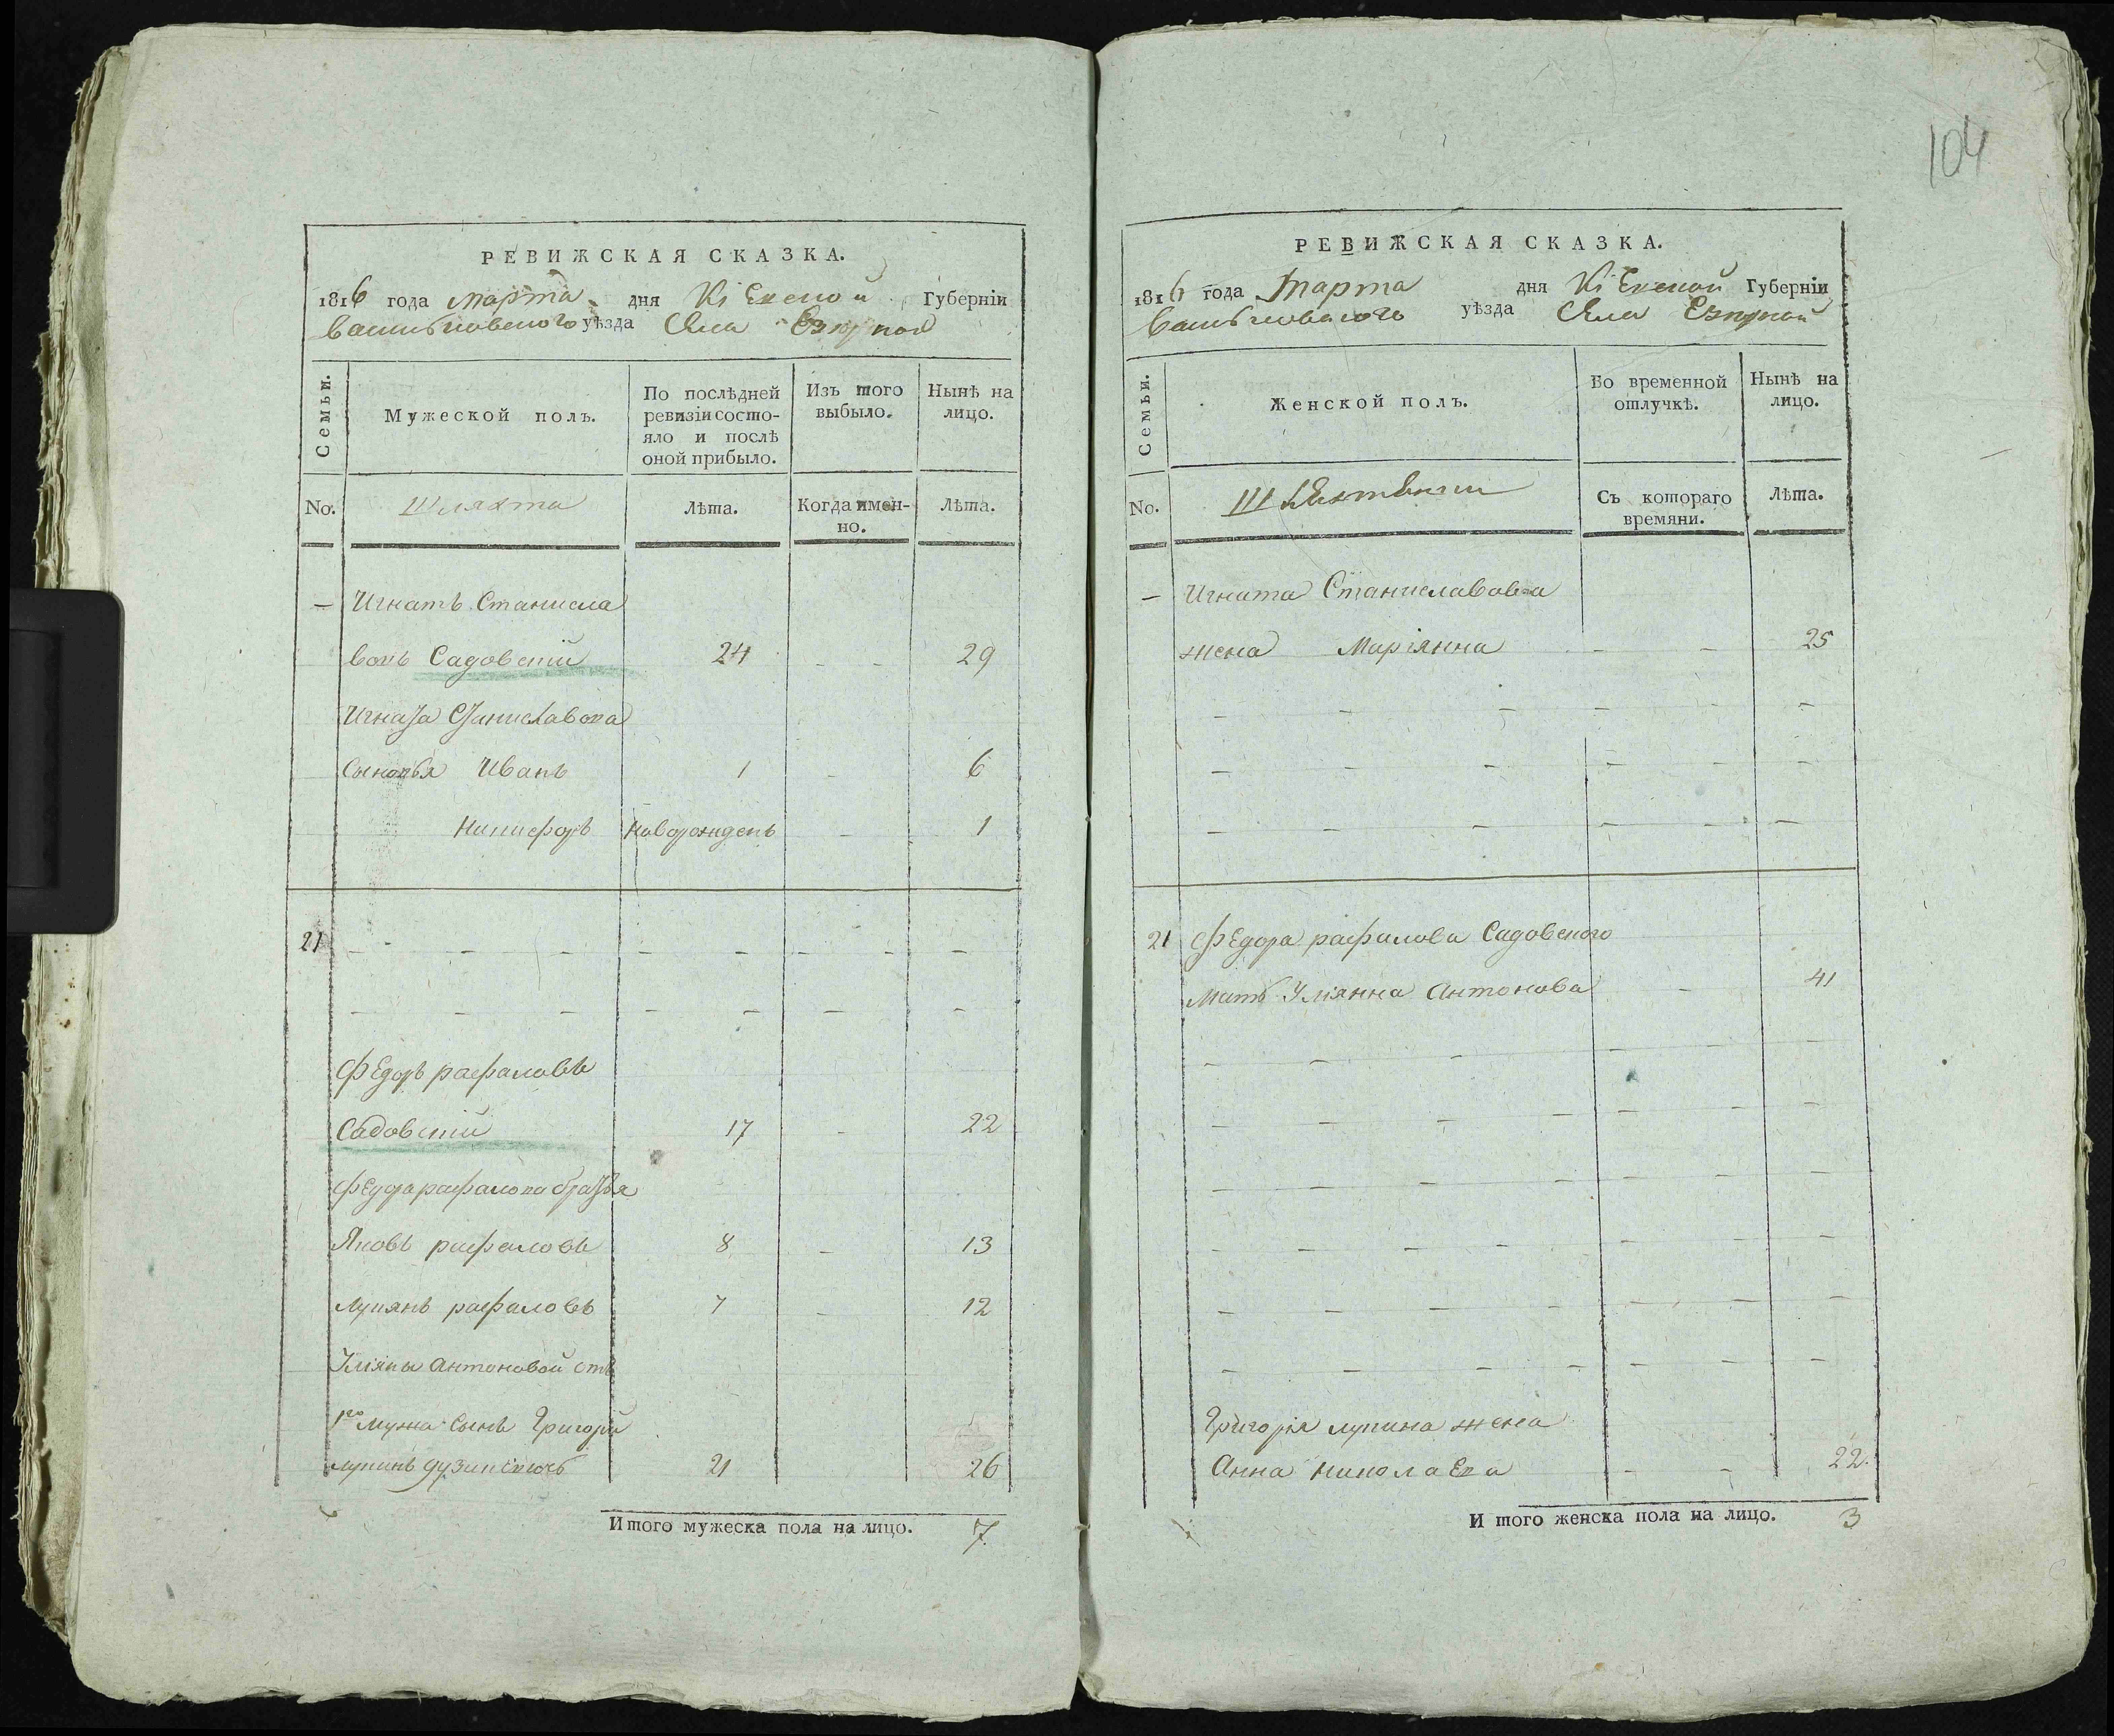 104
РЕВИЖСКАЯ СКАЗКА.
1816 года марта дня Кіевской Губерніи
Васильковского уѣзда Села
Семьи.
Мужеской полъ.
По послѣдней ревизіи состояло и послѣ оной прибыло.
Изъ того выбыло.
Нынѣ на лицо.
No.
Шляхта
Лѣта.
Когда имен-но.
Лѣта.
— Игнатъ Станисла
вовъ Садовскій 24 - - 29
Игната Станиславова
Сыновья Иванъ 1 - 6
Никифоръ новорожденъ - 1
21 - - - - - - - -
- - - - - - -
Федоръ рафаловъ
Садовскій 17 - 22
Федора рафалова братья
Яковъ рафаловъ 8 - 13
Лукянъ рафаловъ 7 - 12
Уліяны Антоновой отъ
1го мужа Сынъ Григорій
лукинъ 21 26
Итого мужеска пола на лицо. 7.
РЕВИЖСКАЯ СКАЗКА.
1816 года Марта дня Кіевской Губерніи
Васильковского уѣзда Села
Семьи.
Женской полъ.
Во временной отлучкѣ.
Нынѣ на лицо.
No.
Съ котораго времяни.
Лѣта.
— Игната Станиславова
жена Маріянна - - 25
- - - - - -
- - - - -
- - - - - -
21 Федора рафалова Садовского
Мать Уліянна Антонова - 41
- - - - -
- - - - - -
- - - - - -
- - - - - - -
- - - - - - -
- - - - - - -
Григорія лукина жена
Анна николаева - - 22.
И того женска пола на лицо. 3